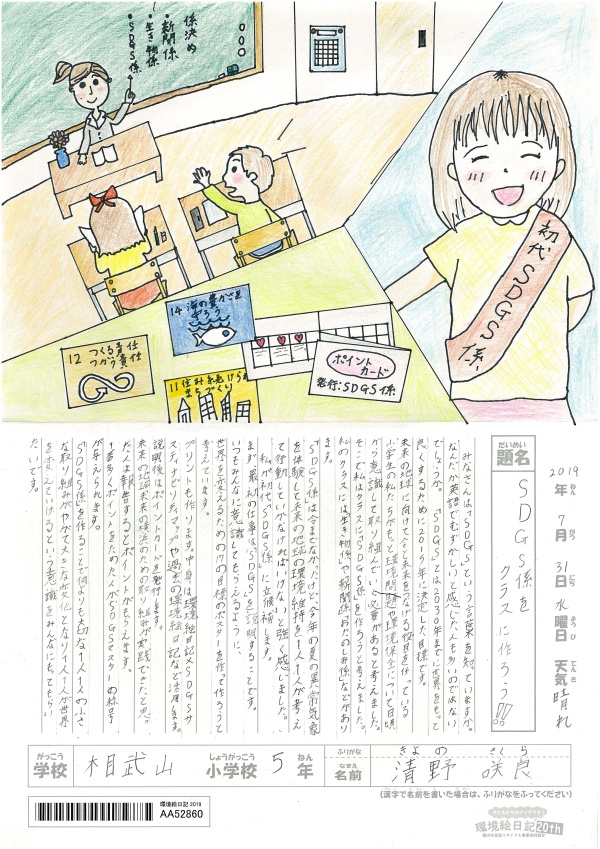 係決め
・新聞係
・生き物係
・SDGS係
初代SDGS係!
14 海の豊かさを
守ろう
12 つくる責任
つかう責任
11 住み続けられる
まちづくり
ポイント
カード
発行:SDGS係
2019年 7月 31日 水曜日 天気 晴れ
ねん がつ にち ようび てんき
だいめい
題名
SDGS係を
クラスに作ろう!!
みなさんは「SDGS」という言葉を知っていますか。
なんだか英語でむずかしいと感じた人も多いのではない
でしょうか。「SDGS」とは2030年までに世界をもっと
良くするために2015年に決定した目標です。
未来の地球に向けて今と未来をつなげる役目を待っている
小学生の私たちがもっと環境問題や環境保全について日頃
から意識して取り組んでいく必要があると考えました。
そこで私はクラスに「SDGS係」を作ろうと考えました。
私のクラスには生き物係や新聞係、お楽しみ係などがあり
ます。
「SDGS係」は今までなかったけど、今年の夏の異常気象
を体験して未来の地球の環境維持を1人1人が考え
て行動していかなければいけないと強く感じました。
私が初代「SDGS係」に立候補します。
まず、最初の仕事は「SDGS」を説明することです。
いつもみんなに意識してもらえるように、
世界を変えるための17の目標のポスターを作って作ろうと
考えています。
プリントも作ります。中身は「環境絵日記×SDGS サ
スティナビリティマップ」や過去の環境絵日記など活用します。
説明後はポイントカードを発行します。
未来の地球、未来の横浜のための取り組みが実践できたと思っ
た人は報告するとポイントがもらえます。
1番多くポイントをためた人が「SDGSマスター」の称号
が与えられます。
「SDGS係」を作ることで何よりも大切な1人1人の小さ
な取り組みがやがて大きな文化となり1人1人が世界
を変えていけるという意識をみんなにもってもらい
たいです。
がっこう しょうがっこう ねん
学校 相武山 小学校 5年
ふりがな きよの さくら
なまえ
名前 清野 咲良
(漢字で名前を書いた場合は、ふりがなをふってください)
環境絵日記 2019
AA52860
環境絵日記 20th